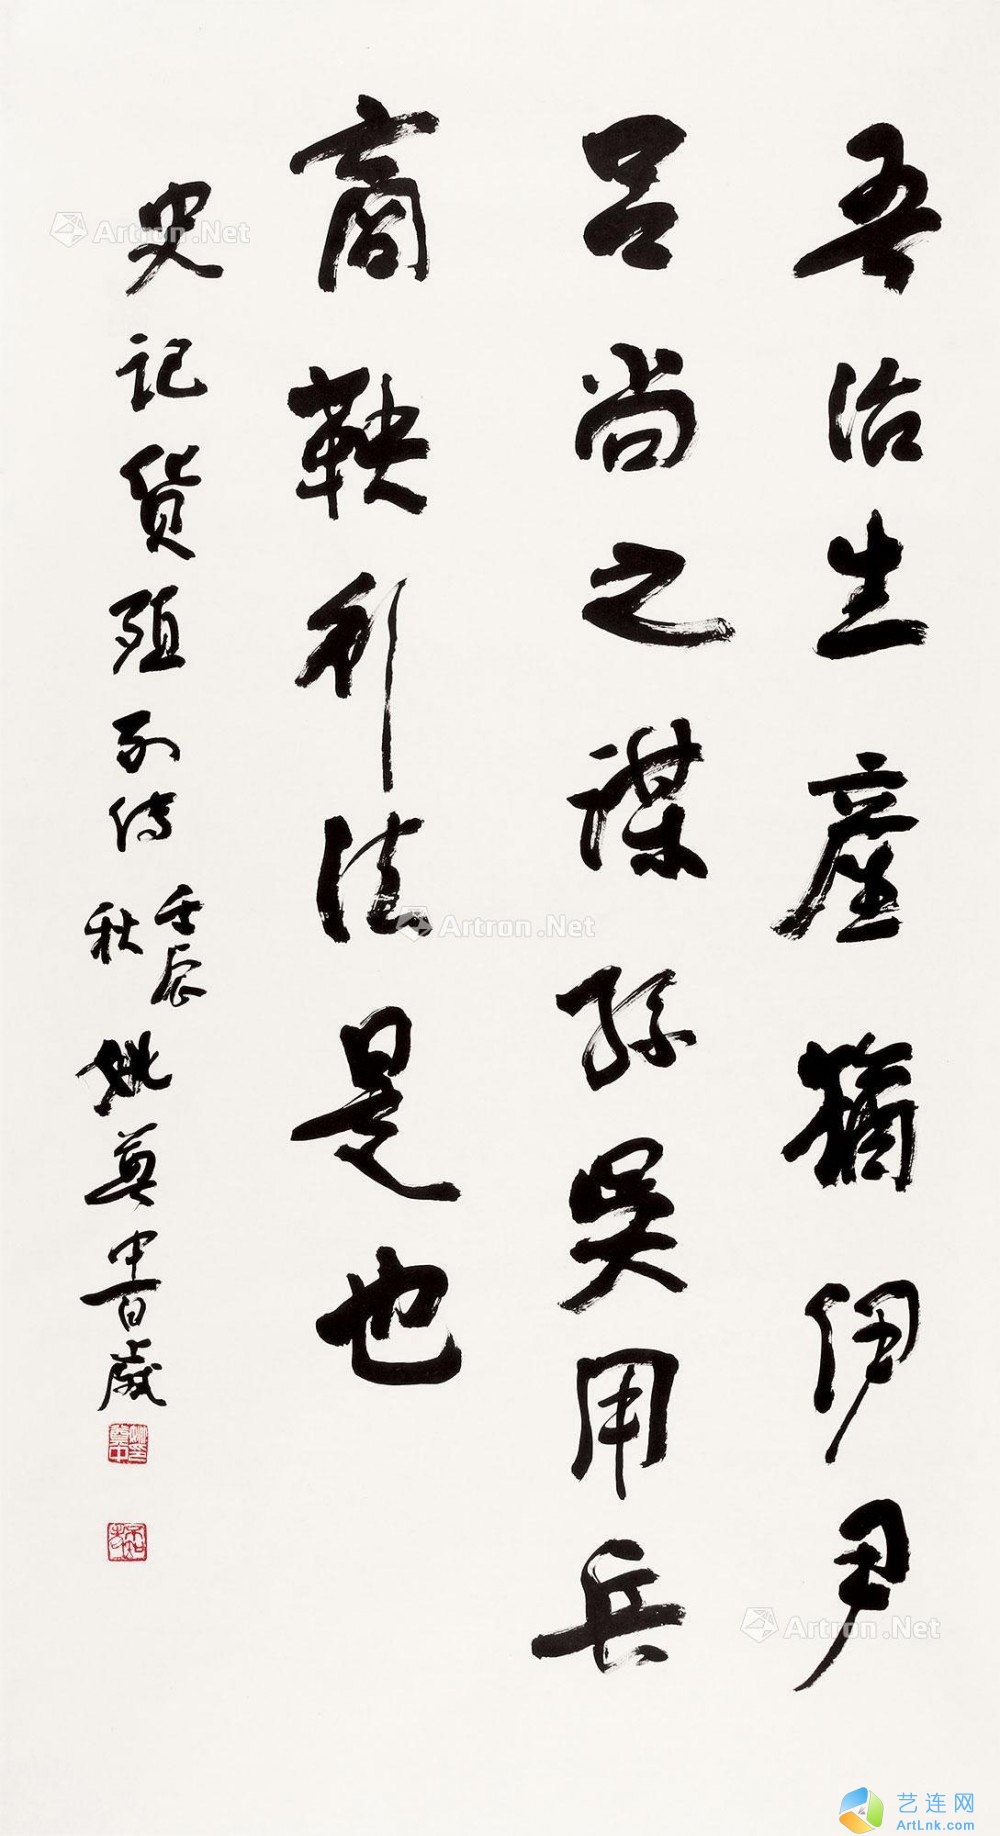 吾治生產猶伊尹
呂尚之謀孫吳用兵
商鞅行法是也
史記貨殖列傳
壬辰
秋
姚奠中百歲
Artron.Net
Artron.Net
Artron.Net
艺连网
ArtLnk.com